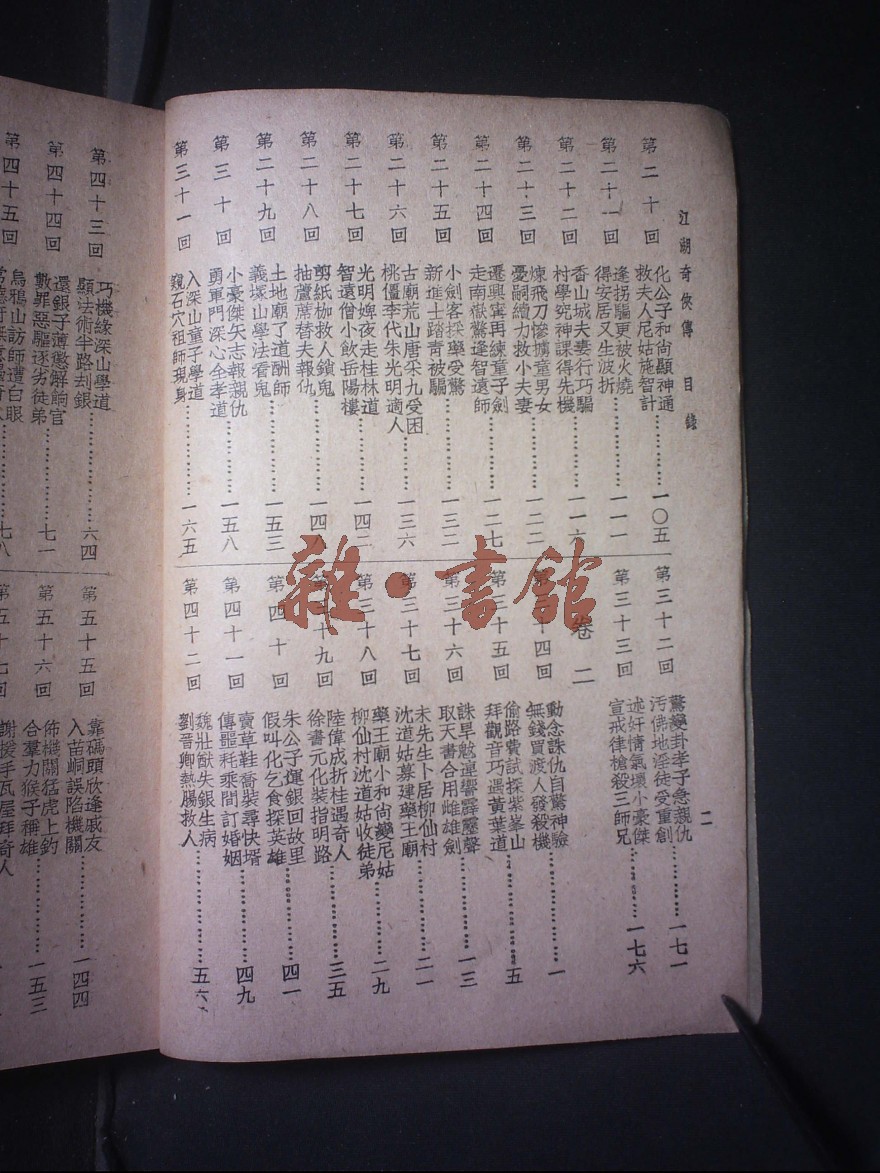 江湖奇俠傳 目錄
二
第二十回
化公子和尚顯神通
救夫人尼姑施智計……一〇五
第二十一回
逢拐騙更被火燒
得安居又生波折……一一一
第二十二回
香山城夫妻行巧騙
村學究神課得先機……一一六
第二十三回
煉飛刀慘擄童男女
憂嗣續力救小夫妻……一二二
第二十四回
遷興甯再練童子劍
走南嶽驚逢智遠師……一二七
第二十五回
小劍客採藥受驚
新進士踏靑被騙……一三二
第二十六回
古廟荒山唐采九受困
桃僵李代朱光明適人……一三六
第二十七回
光明婢夜走桂林道
智遠僧小飲岳陽樓……一四二
第二十八回
剪紙枷救人鎖鬼
抽蘆蓆替夫報仇……一四八
第二十九回
土地廟了道酬師
義塚山學法看鬼……一五三
第三十回
小豪傑矢志報親仇
勇軍門深心全孝道……一五八
第三十一回
入深山童子學道
窺石穴祖師現身……一六五
第三十二回
驚變卦孝子急親仇
汚佛地淫徒受重創……一七一
第三十三回
述奸情氣壞小豪傑
宣戒律槍殺三師兄……一七六
卷二
第三十四回
動念誅仇自驚神驗
無錢買渡人發殺機……一
第三十五回
偷路費試探紫峯山
拜觀音巧遇黃葉道……五
第三十六回
誅旱魃連響霹靂聲
取天書合用雌雄劍……一三
第三十七回
未先生卜居柳仙村
沈道姑募建藥王廟……二一
第三十八回
藥王廟小和尚變尼姑
柳仙村沈道姑收徒弟……二九
第三十九回
陸偉成折桂遇奇人
徐書元化裝指明路……三五
第四十回
朱公子運銀回故里
假叫化乞食探英雄……四一
第四十一回
賣草鞋喬裝尋快壻
傳噩耗乘間訂婚姻……四九
第四十二回
魏壯猷失銀生病
劉晉卿熱腸救人……五六
第四十三回
巧機緣深山學道
顯法術半路刦銀……六四
第四十四回
還銀子薄懲解餉官
數罪惡驅逐劣徒弟……七一
第四十五回
烏鴉山訪師遭白眼
七八
第五十五回
靠碼頭欣逢戚友
入苗峒誤陷機關……一四四
第五十六回
佈機關猛虎上釣
合羣力猴子稱雄……一五三
第五十七回
謝援手瓦屋拜奇人
雜·書館